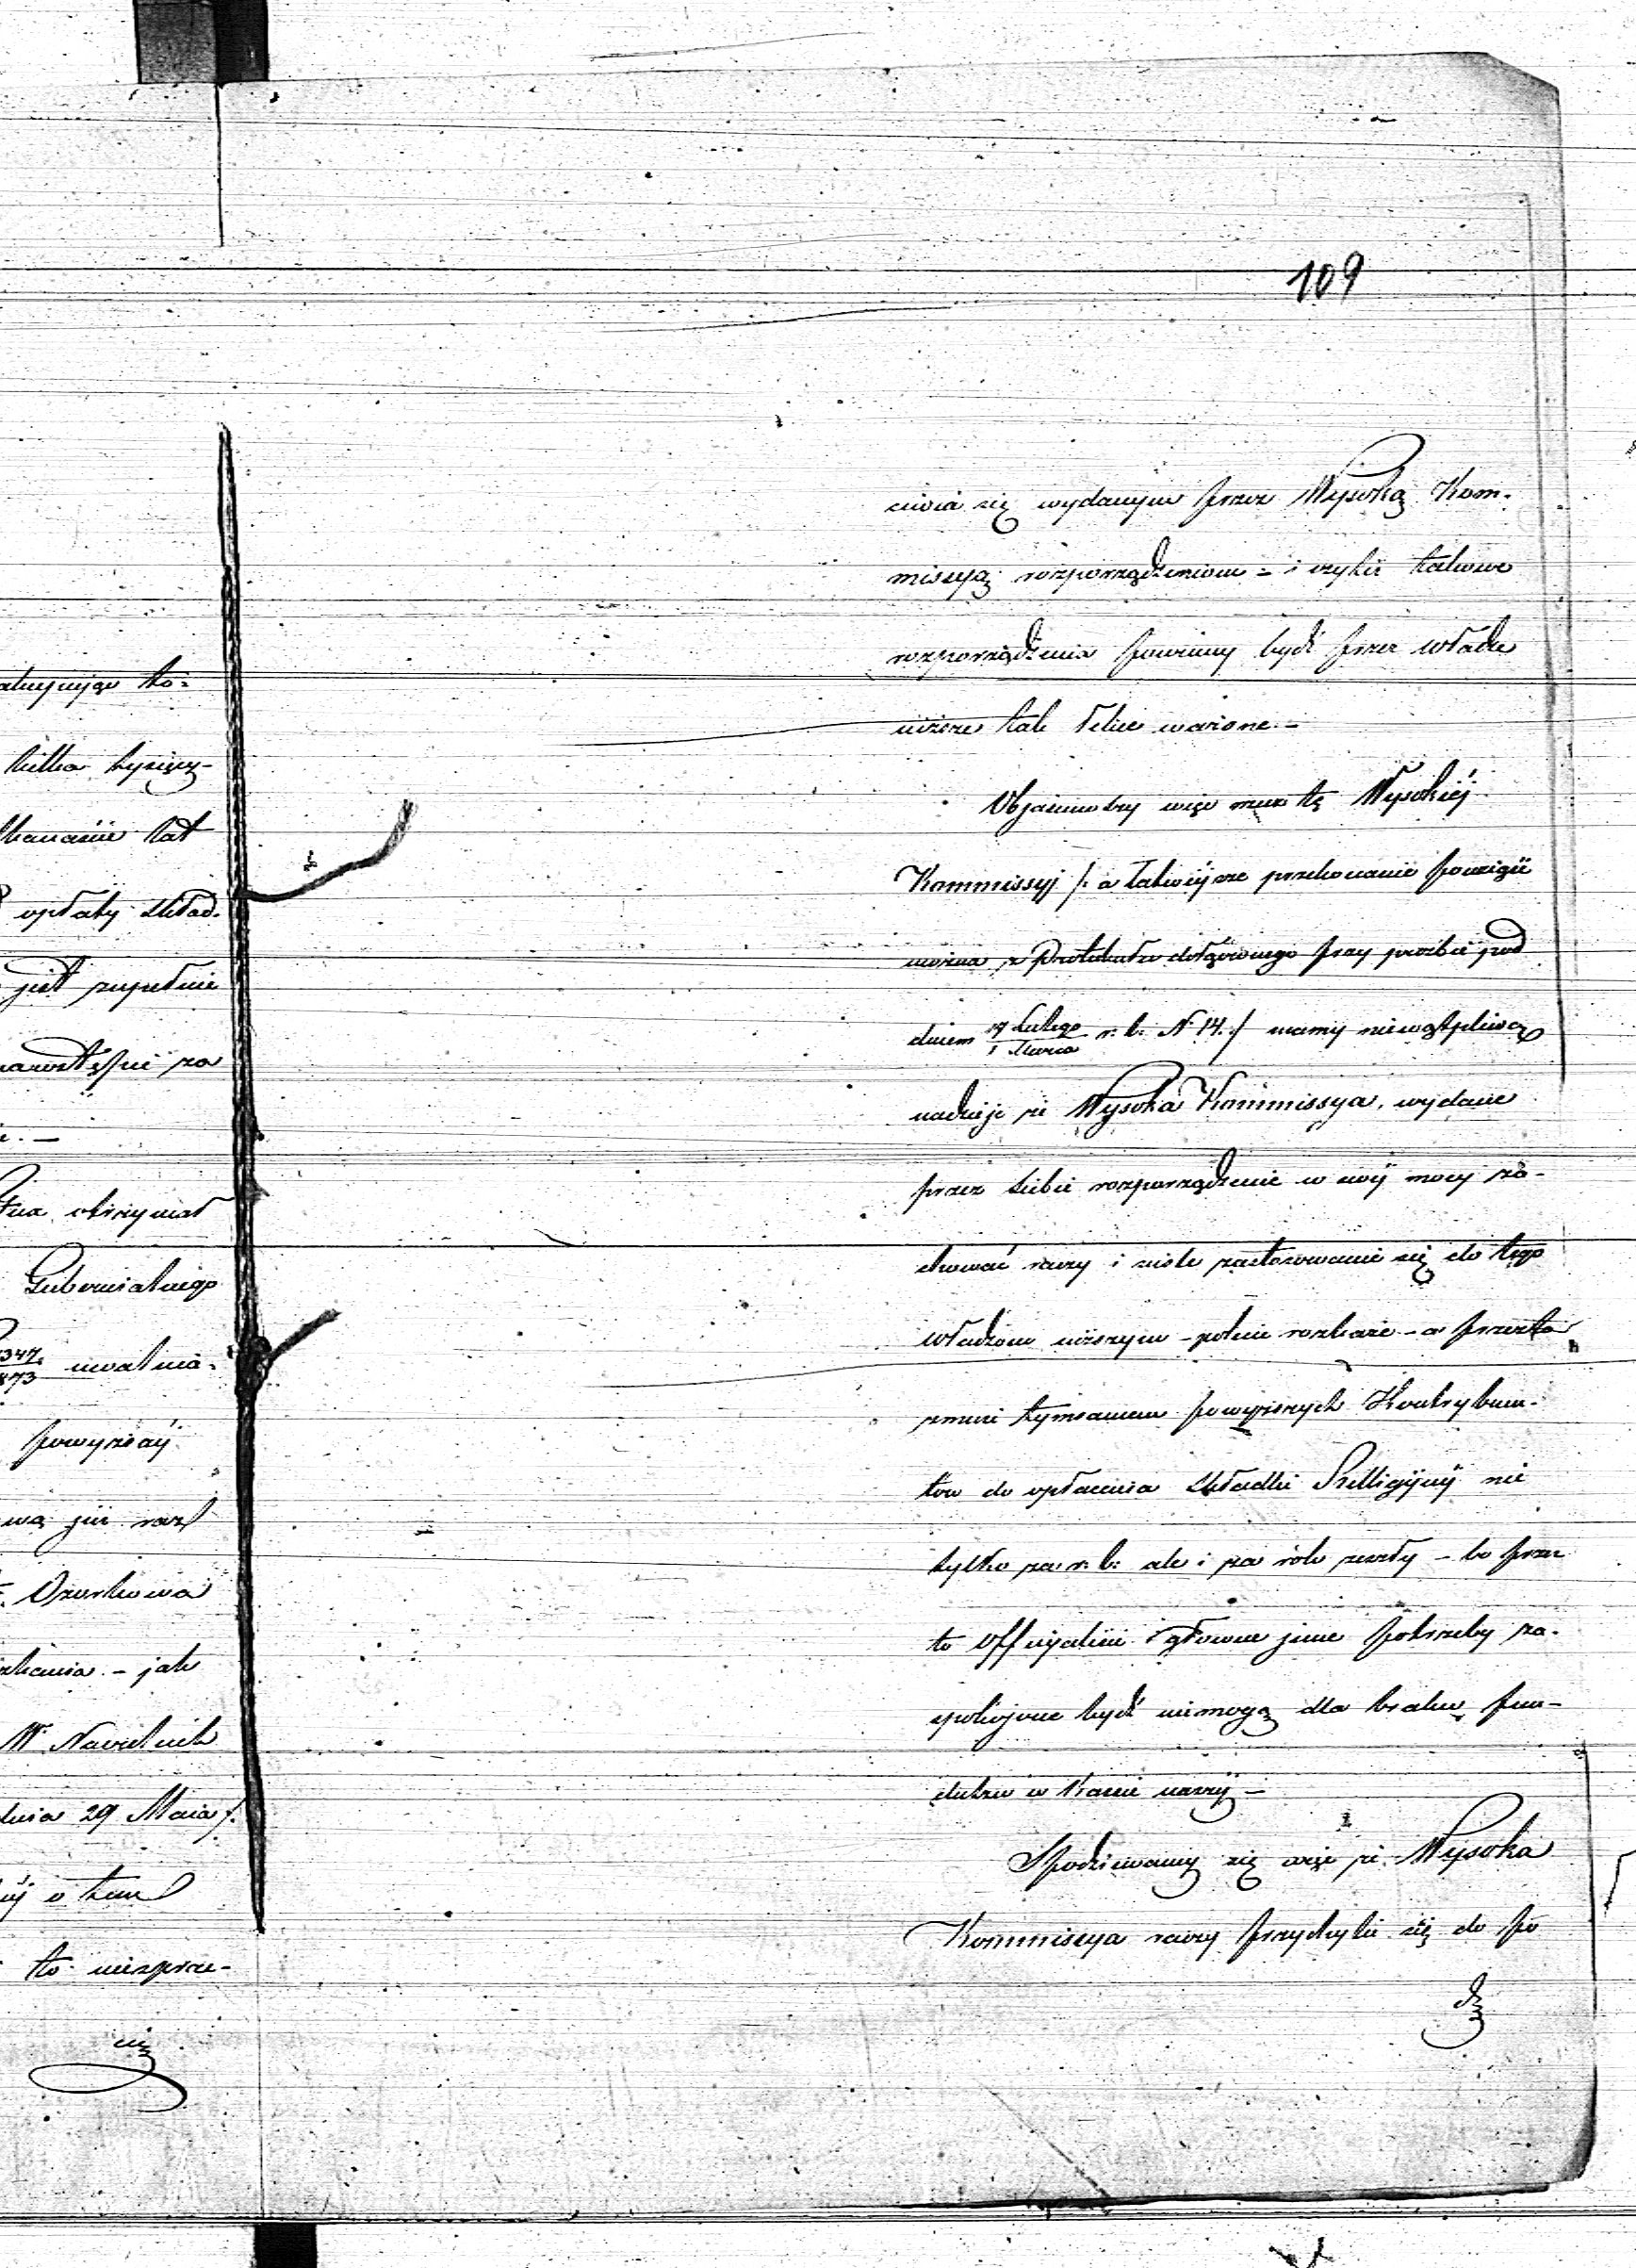 109
ciwia się wydanym przez Wysoką Kom-
missyą rozporządzeniom - i czyliż takowe
rozporządzenia powinny bydź przez władze
niższe tak lekce ważone. -
Objaśniwszy więc rzecz tę Wysokiéj
Kommissyj /: a łatwiéjsze przekonanie powziąść
można z Protokułu dołączonego przy prośbie pod
dniem 17 Lutego / 1 Marca r. b. N. 14 :/ mamy niewątpliwą
nadzieję że Wysoka Kommissya, wydane
przez siebie rozporządzenie w swéj mocy za-
chować raczy i ścisłe zastosowanie się do tego
władzom niższym - polecić rozkaże - a przeto
zmusi tymsamem powyższych Kontrybuen-
tów do opłacenia składki Relligijnéj nie
tylko za r. b. ale i za rok zeszły - bo przez
to Officyaliści i główne inne potrzeby za-
spokojone bydź niemogą dla braku fun-
duszu w Kassie naszéj -
Spodziewamy się więc że Wysoka
Kommissya raczy przychylić się do po
alnyjnego to-
kilka tysięcy-
kanaście lat
opłaty skład-
jest zupełnie
za
otrzymał
Gubernialnego
1347/873 uwalnia-
powyższéj
wą już raz
Ozorkowa
szkania - jak
W. Naczelnik
dnia 29 Maia /.
éj o tem
to niesprze-